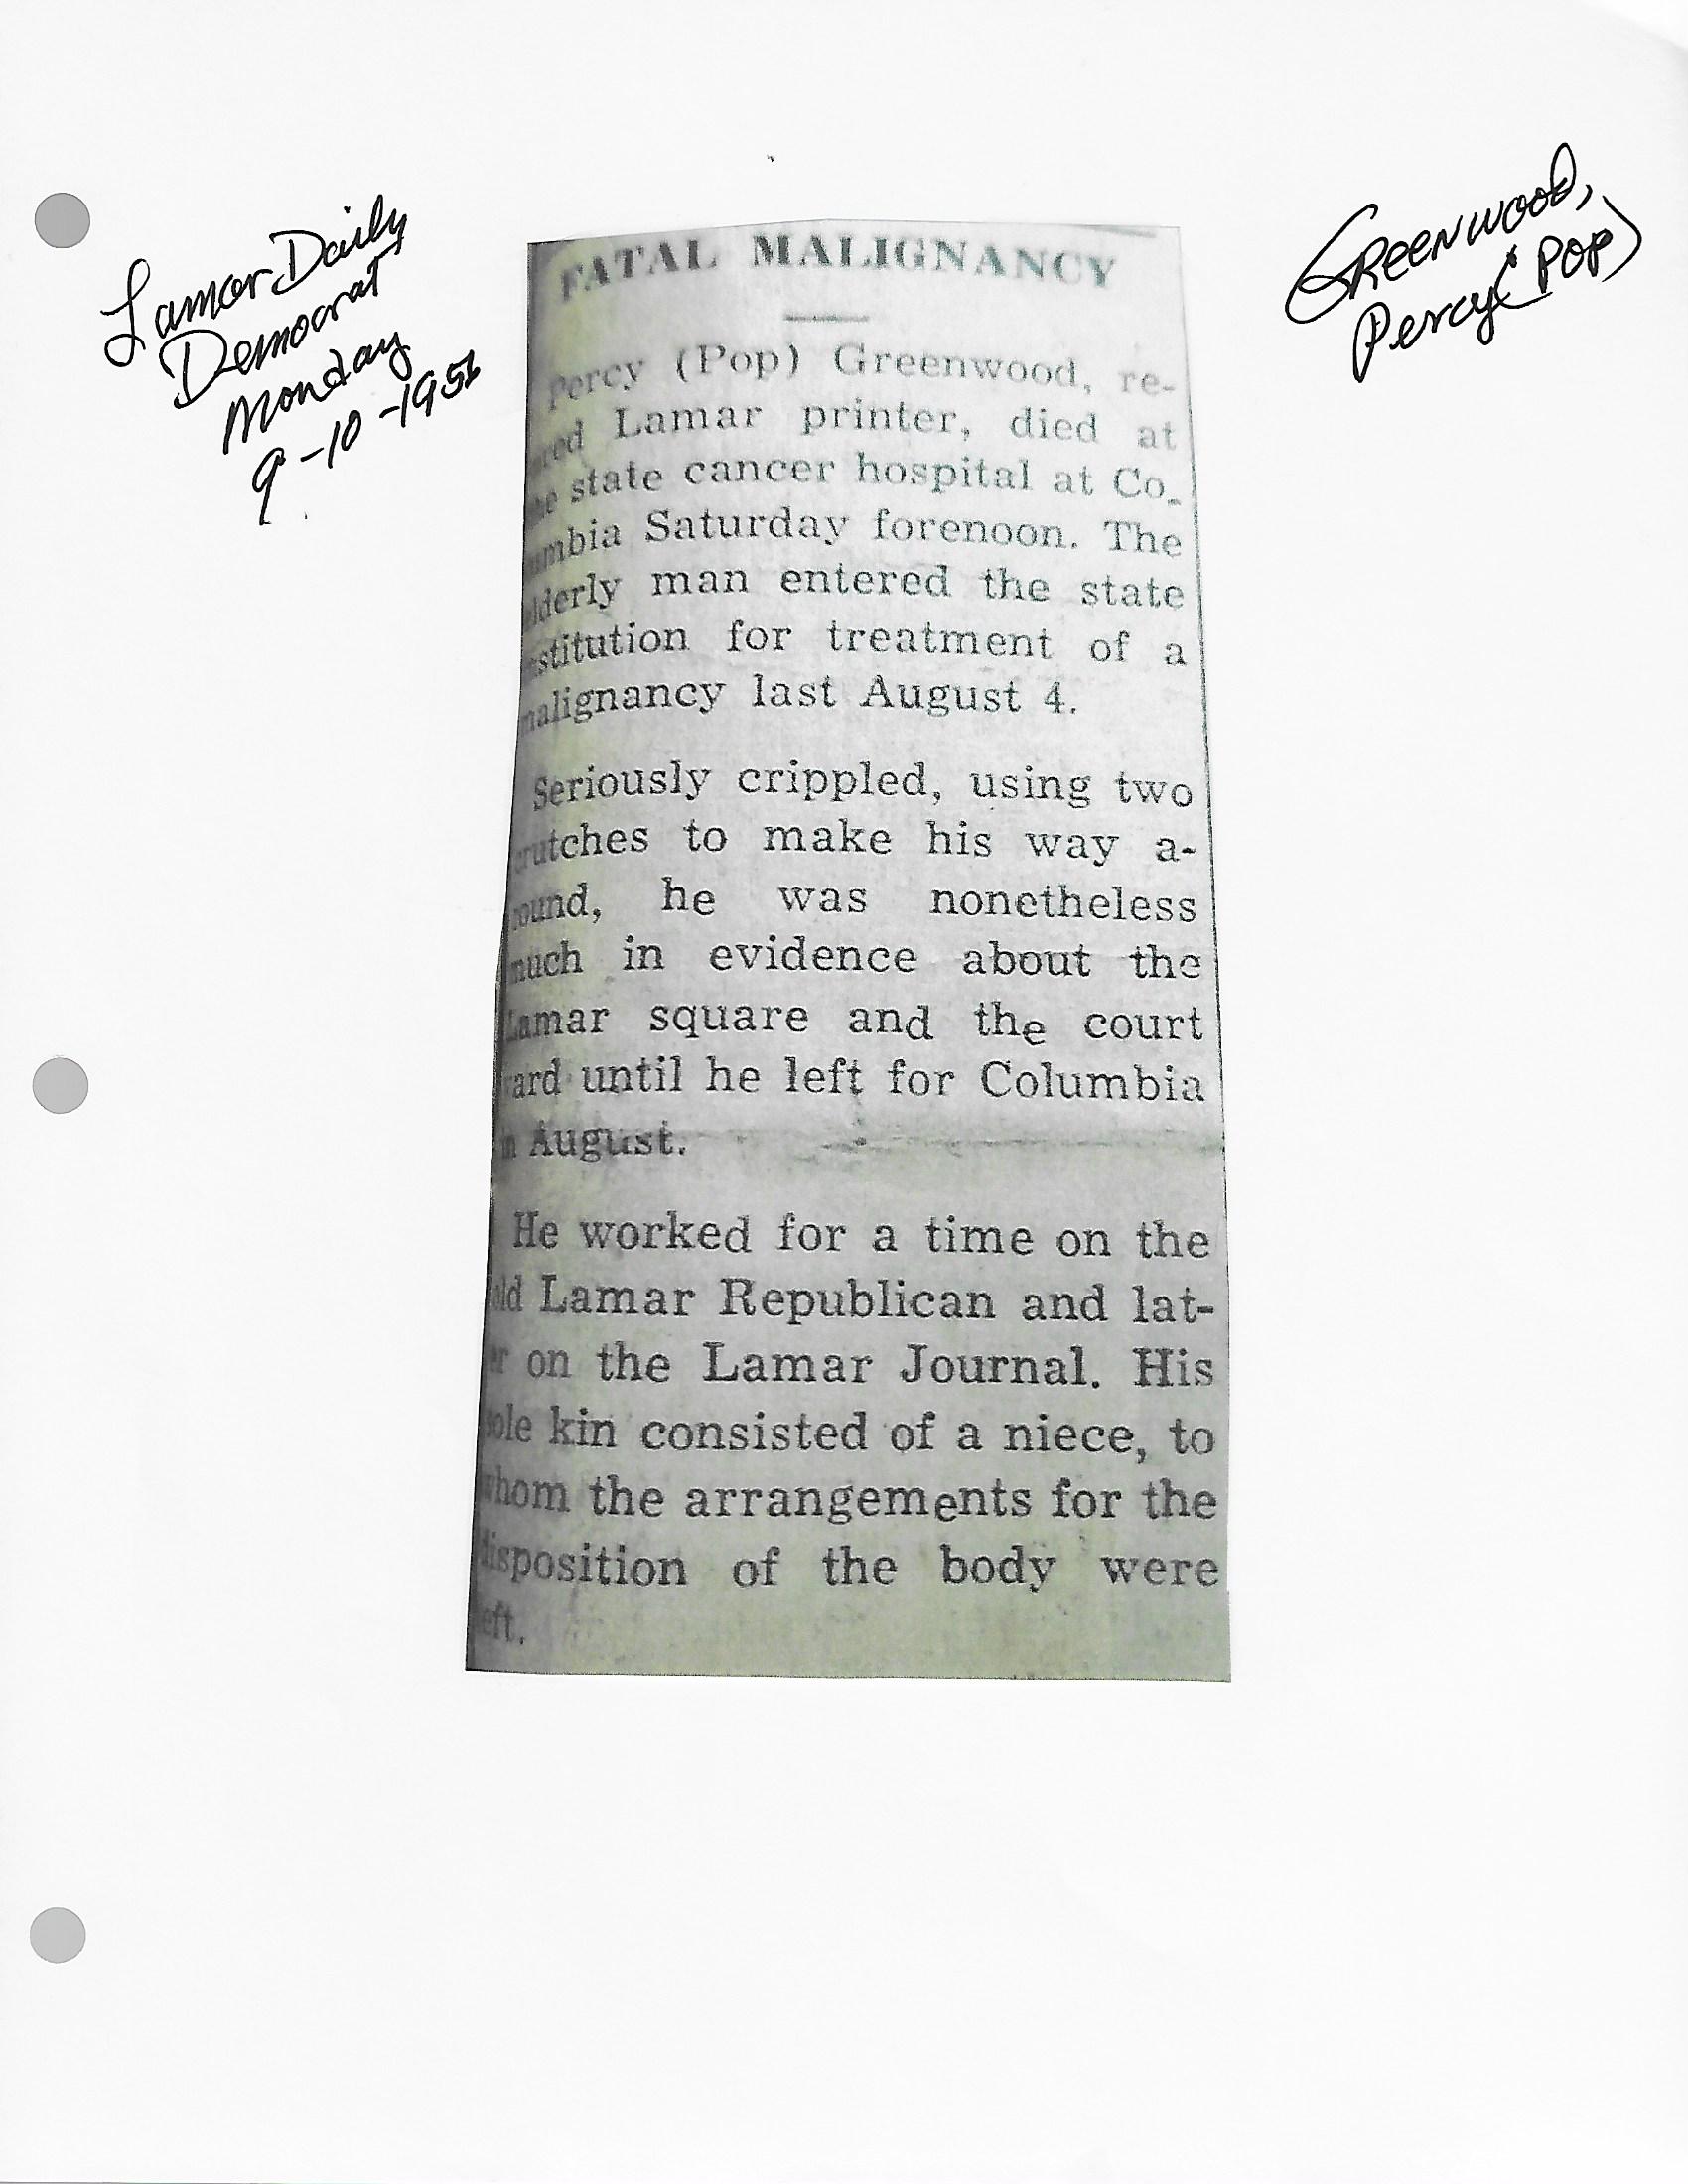 Lamar Daily
Democrat
Monday
9-10-1951
Greenwood,
Percy (Pop)
FATAL MALIGNANCY
Percy (Pop) Greenwood, re-
ired Lamar printer, died at
he state cancer hospital at Co-
umbia Saturday forenoon. The
lderly man entered the state
stitution for treatment of a
malignancy last August 4.
Seriously crippled, using two
crutches to make his way a-
round, he was nonetheless
much in evidence about the
Lamar square and the court
yard until he left for Columbia
in August.
He worked for a time on the
old Lamar Republican and lat-
er on the Lamar Journal. His
sole kin consisted of a niece, to
whom the arrangements for the
disposition of the body were
left.